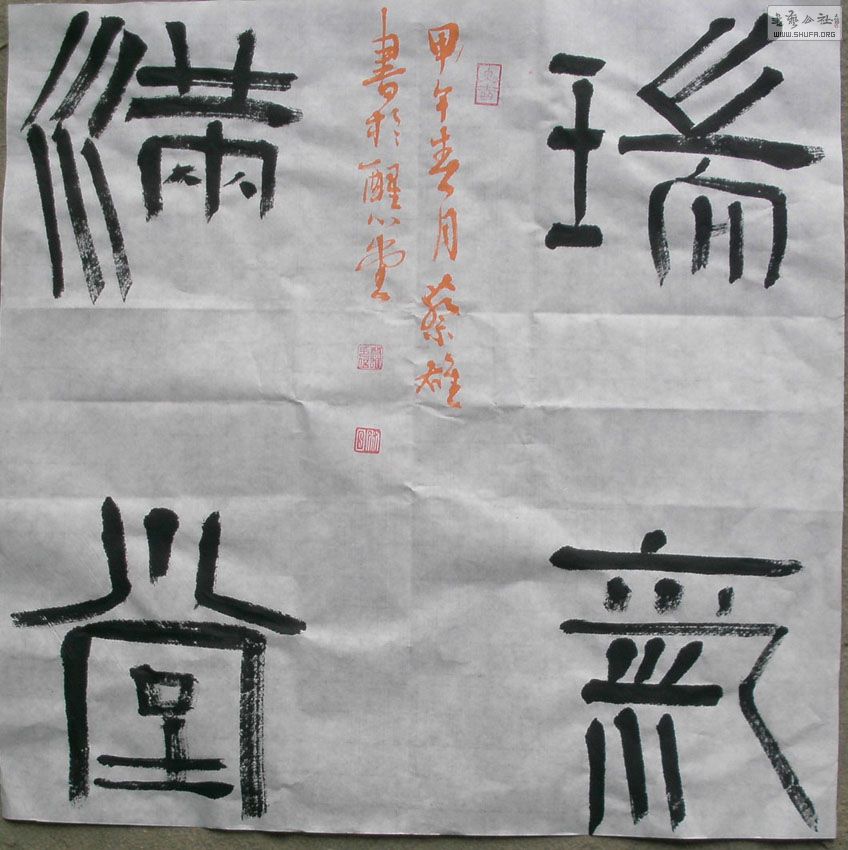 瑞氣
滿堂
甲午春月蔡雄
書於醒心堂
书艺公社
WWW.SHUFA.ORG